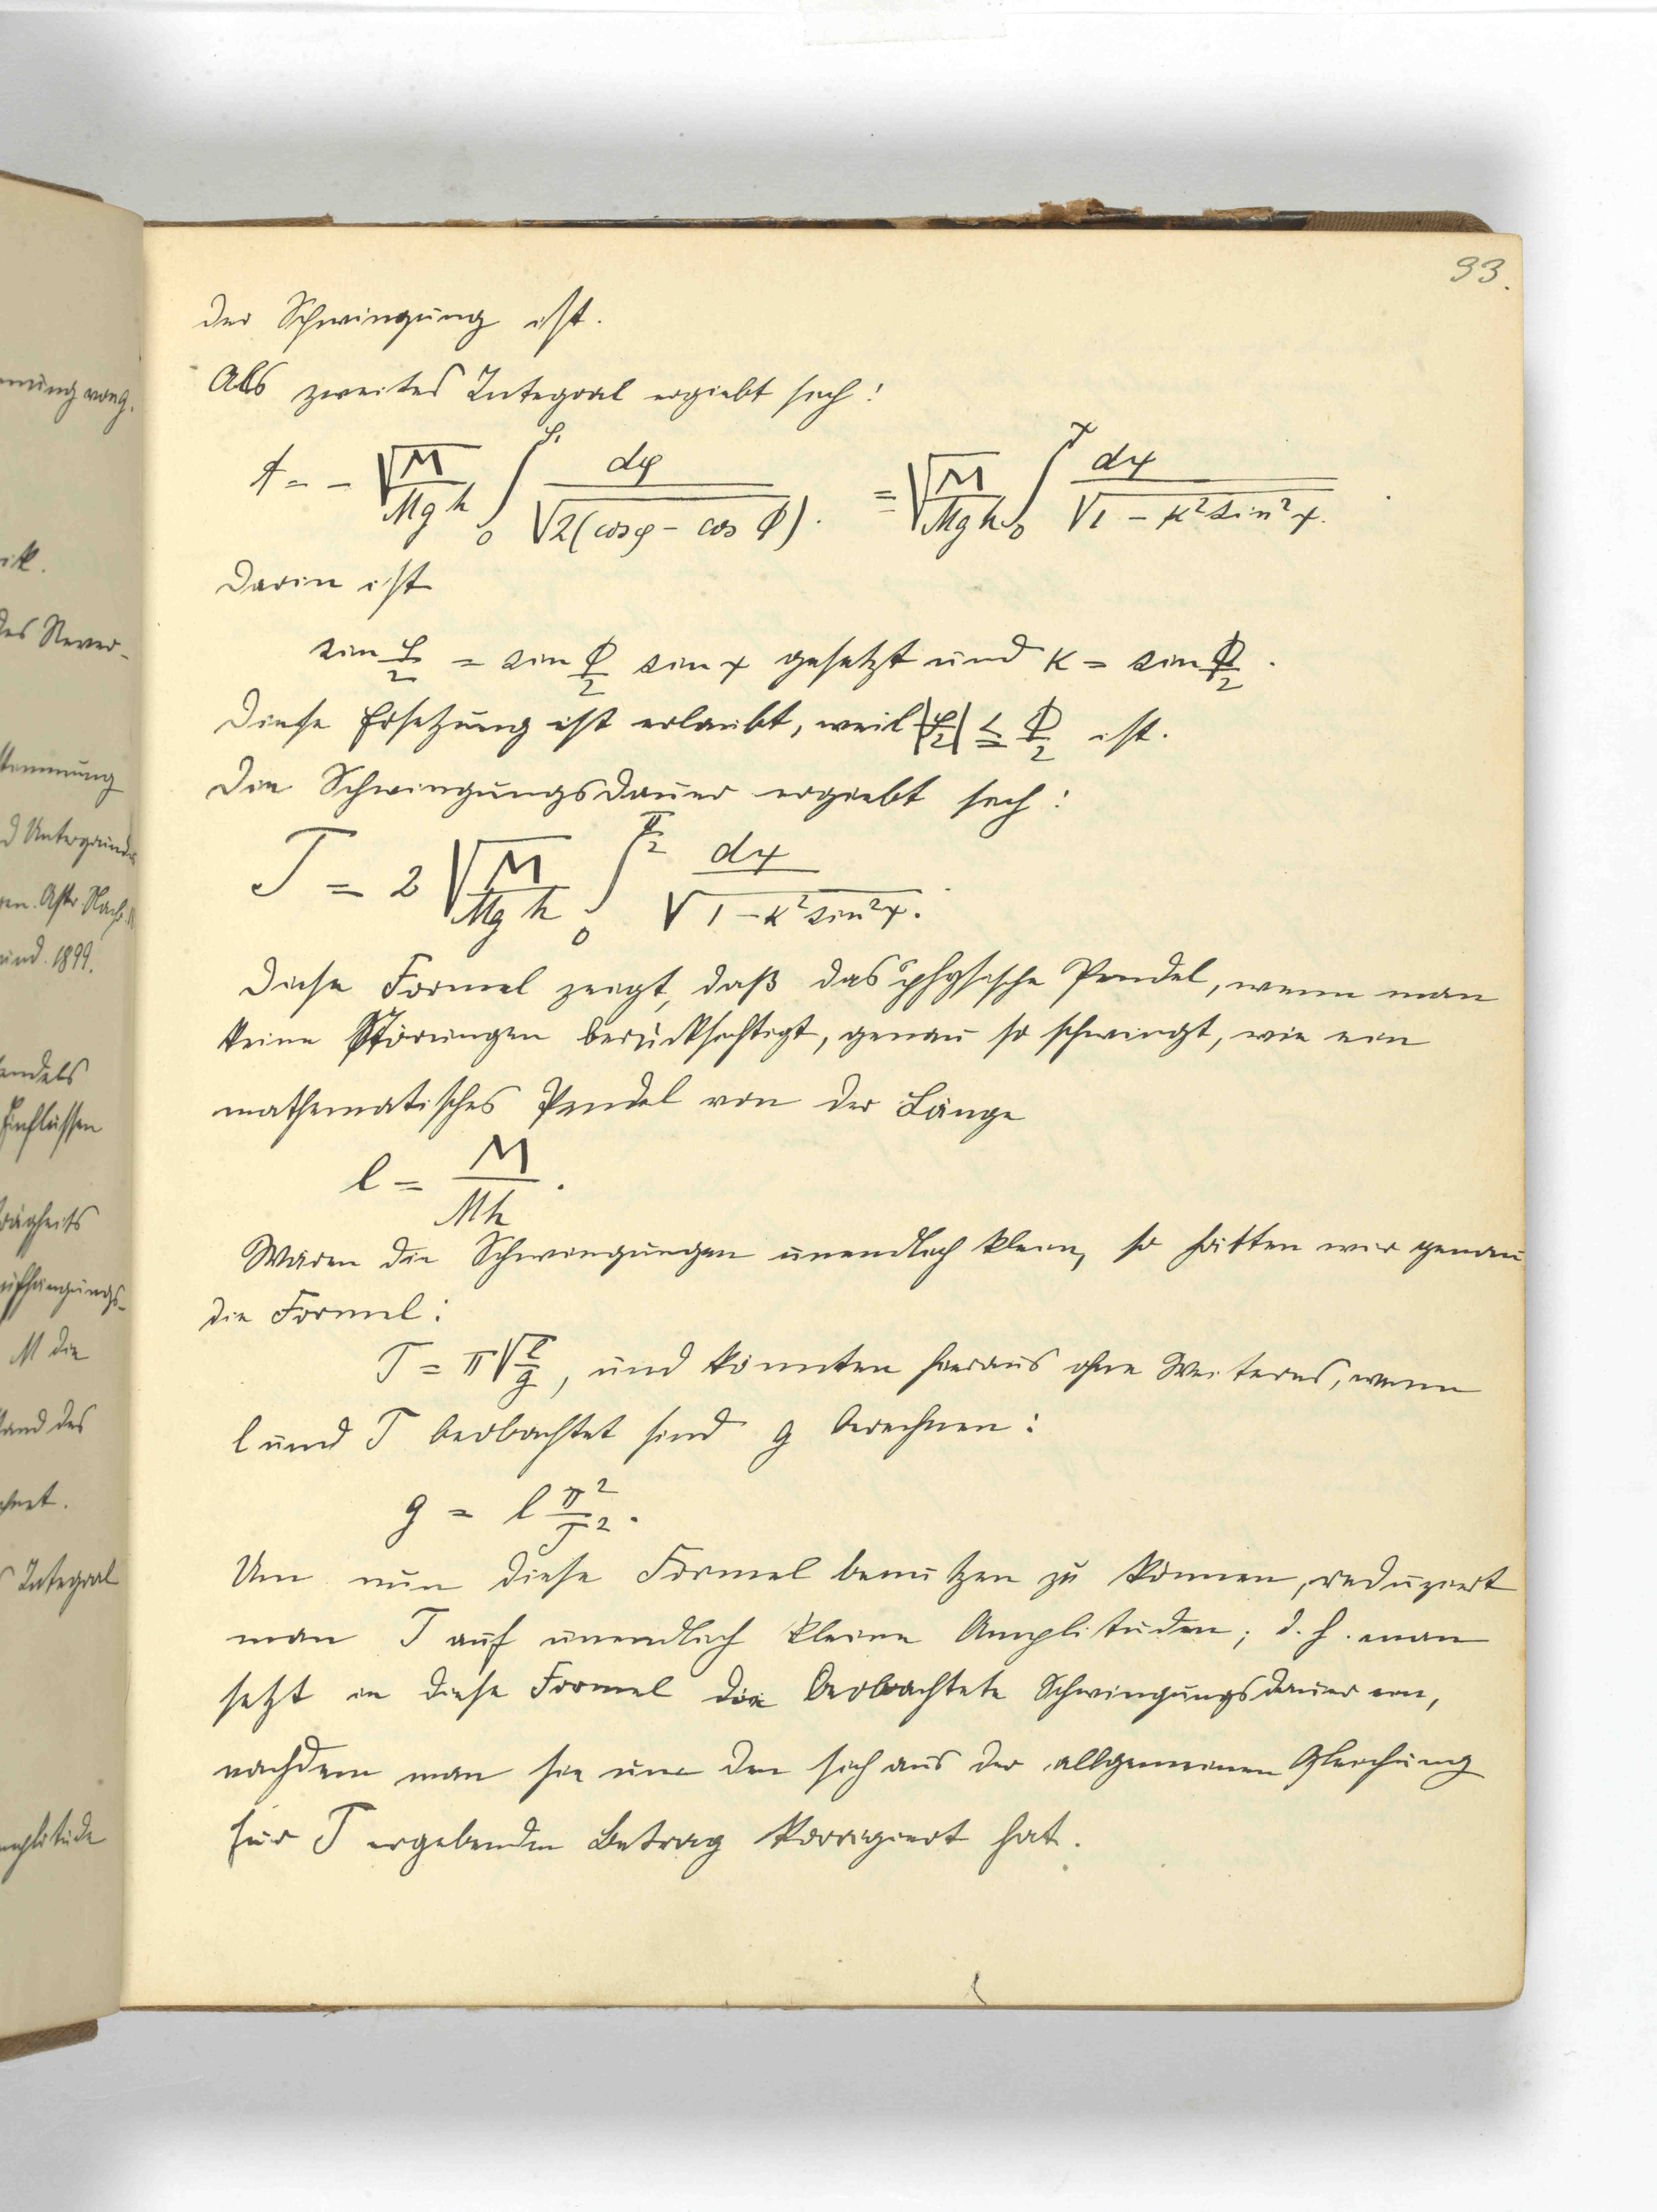 93.
der Schwingung ist.
Als zweites Integral ergiebt sich:
t = - √(M/Mgh) ∫₀^φ dφ/√(2(cos φ - cos Φ)). = √(M/Mgh) ∫₀^ψ dψ/√(1 - κ² sin² ψ).
Darin ist
sin φ/2 = sin Φ/2 sin ψ gesetzt und κ = sin Φ/2.
Diese Ersetzung ist erlaubt, weil |φ/2| ≤ Φ/2 ist.
Die Schwingungsdauer ergiebt sich:
T = 2 √(M/Mgh) ∫₀^(π/2) dψ/√(1 - κ² sin² ψ).
Diese Formel zeigt, daß das physische Pendel, wenn man
keine Störungen berücksichtigt, genau so schwingt, wie ein
mathematisches Pendel von der Länge
l = M/Mh.
Wären die Schwingungen unendlich klein, so hätten wir genau
die Formel:
T = π √(l/g), und könnten hieraus ohne Weiteres, wenn
l und T beobachtet sind g berechnen:
g = l π²/T².
Um nun diese Formel benutzen zu können, reduziert
man T auf unendlich kleine Amplituden; d. h. man
setzt in diese Formel die beobachtete Schwingungsdauer ein,
nachdem man sie um den sich aus der allgemeinen Gleichung
für T ergebenden Betrag korrigiert hat.